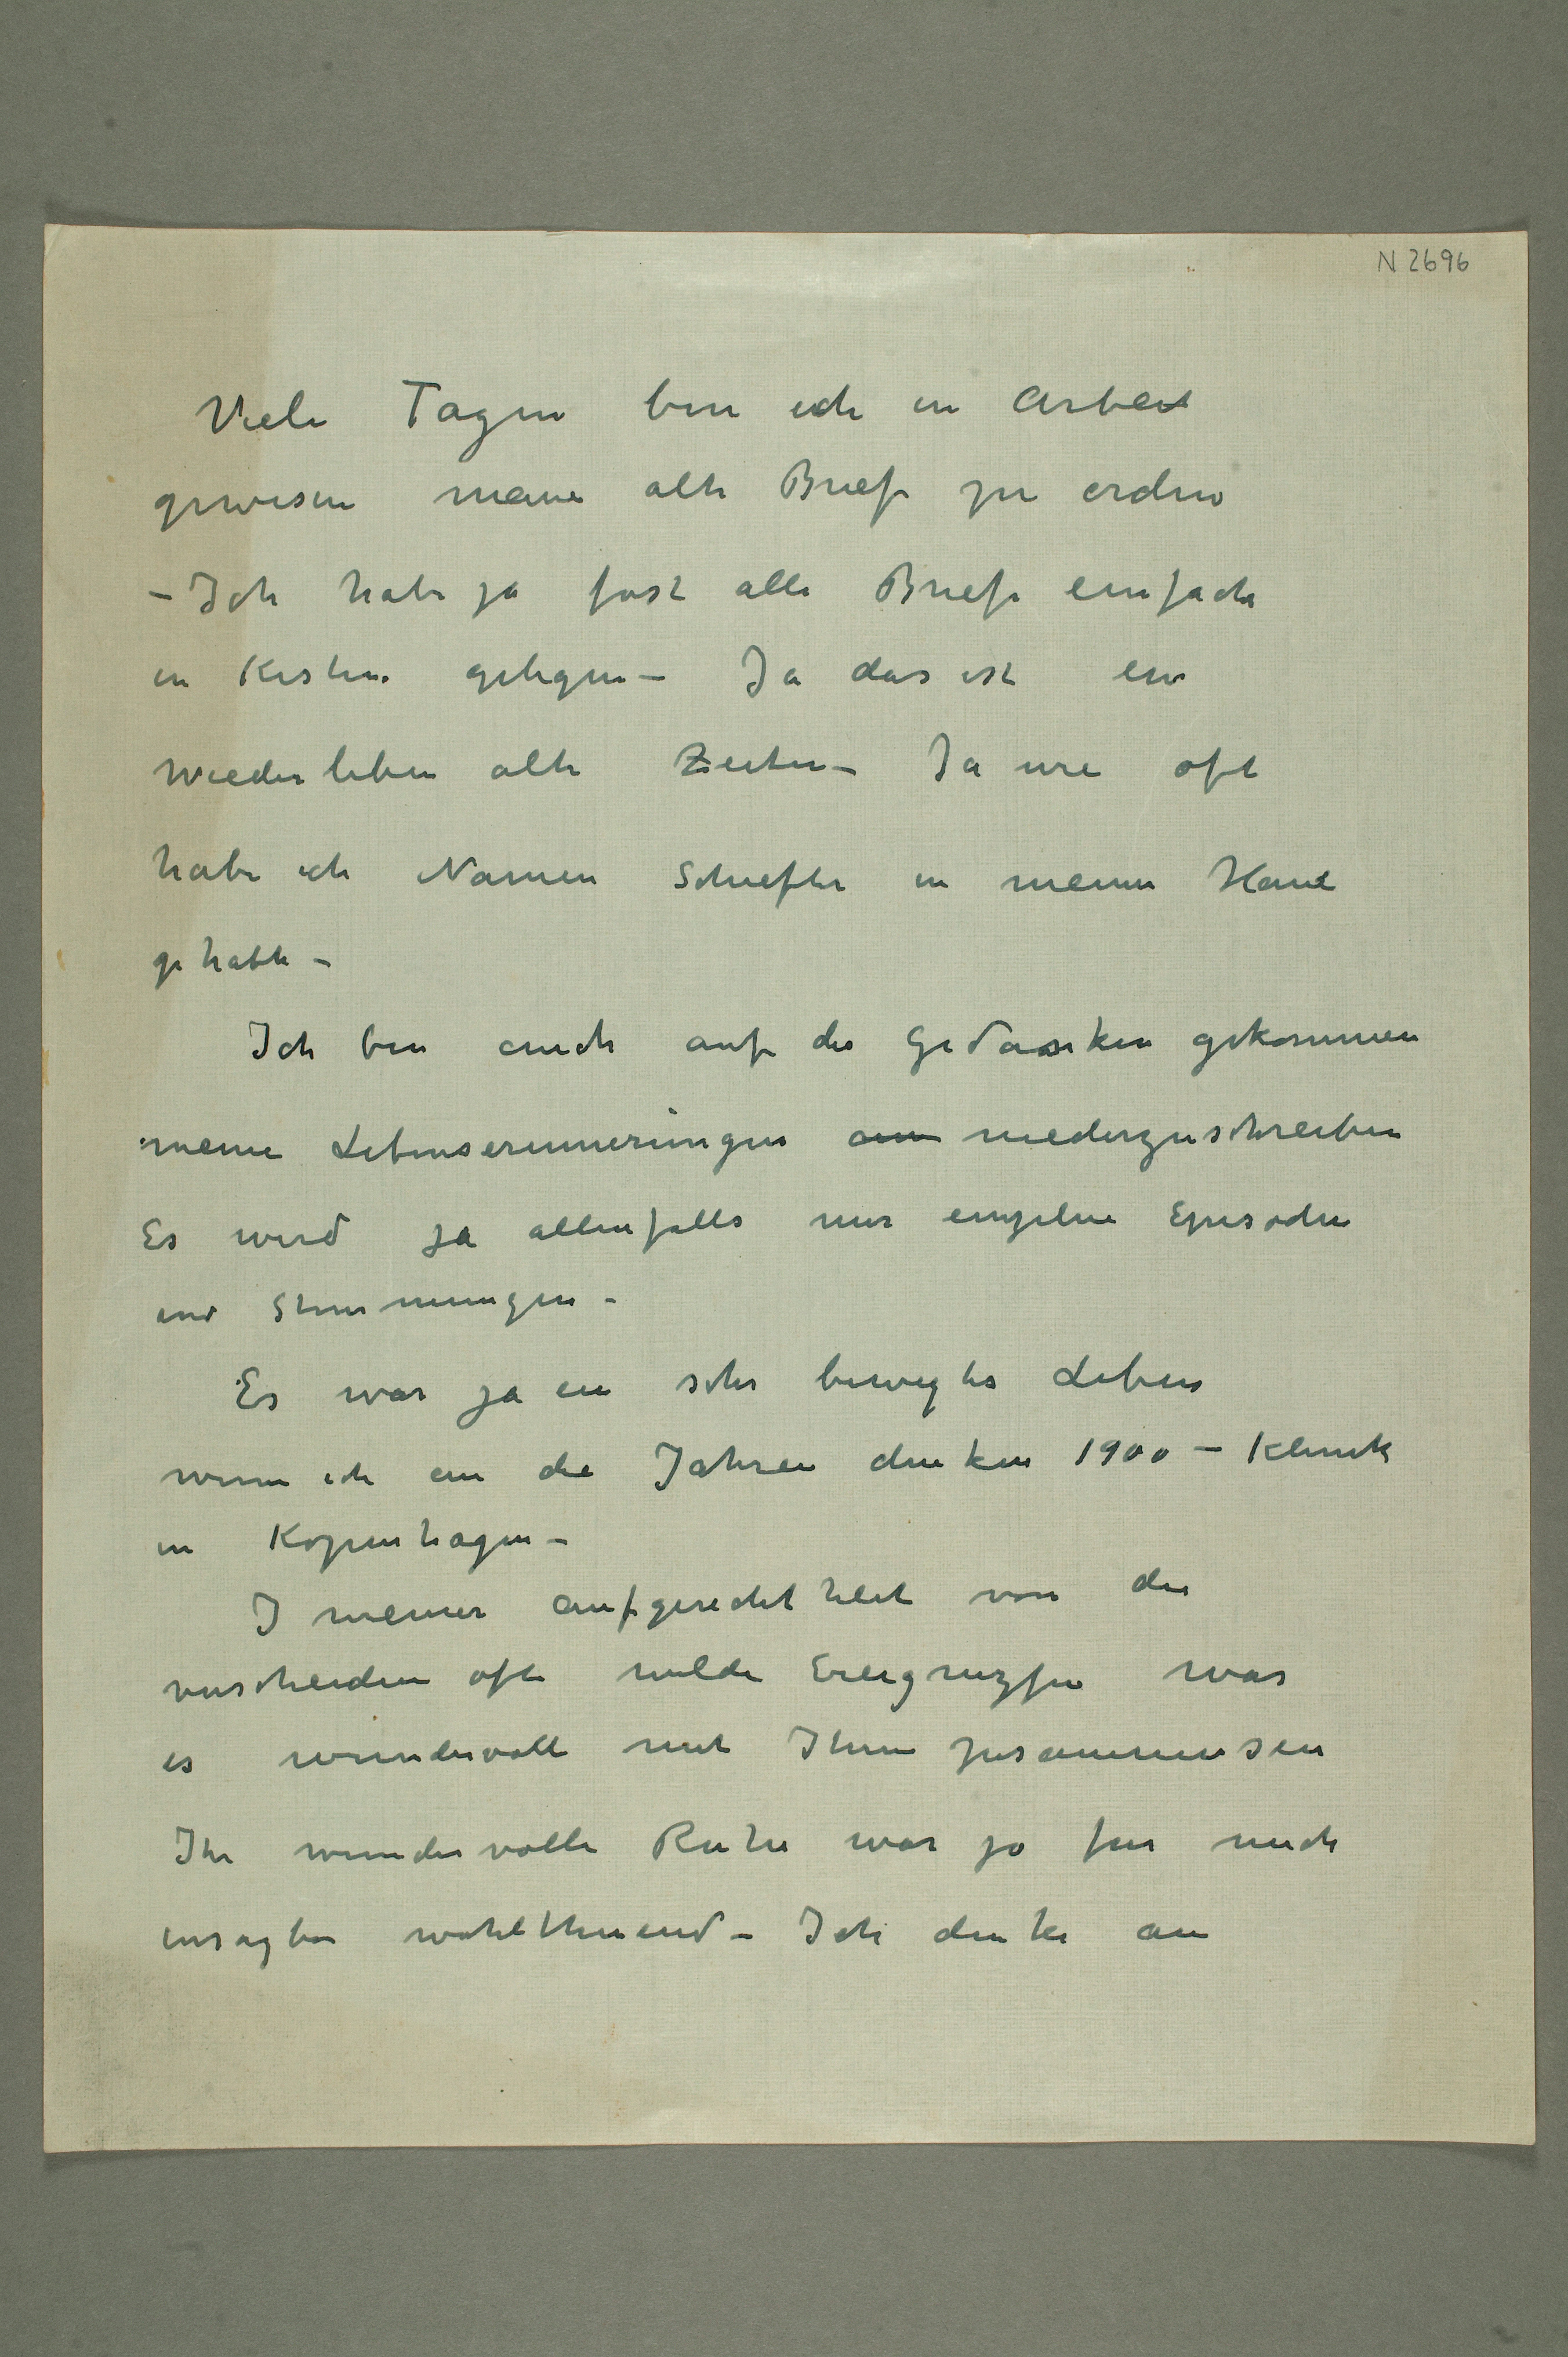 N 2696
Viele Tagen bin ich in Arbeit
gewesen meine alte Briefe zu orden
– Ich habe ja fast alle Briefe einfach
in Kisten gelegen – Ja das ist ein
Wiederleben alte Zeiten – Ja wie oft
habe ich Namen Schiefler in meiner Hand
gehabt –
Ich bin auch auf die Gedanken gekommen
meine Lebenserinnerungen niederzuschreiben
Es wird ja allenfalls nur einzelne Episoden
und Stimmungen –
Es war ja ein sehr bewegtes Leben
wenn ich an die Jahren denken 1900 – Klinik
in Kopenhagen –
I meiner aufgeregtheit von die
verscheiden oft wilde Ereignizse war
es wundervoll mit Ihnen zusammensein
Ihr wundervolle Ruhe war ja fur mich
unsagbar wohlthuend – Ich denke an